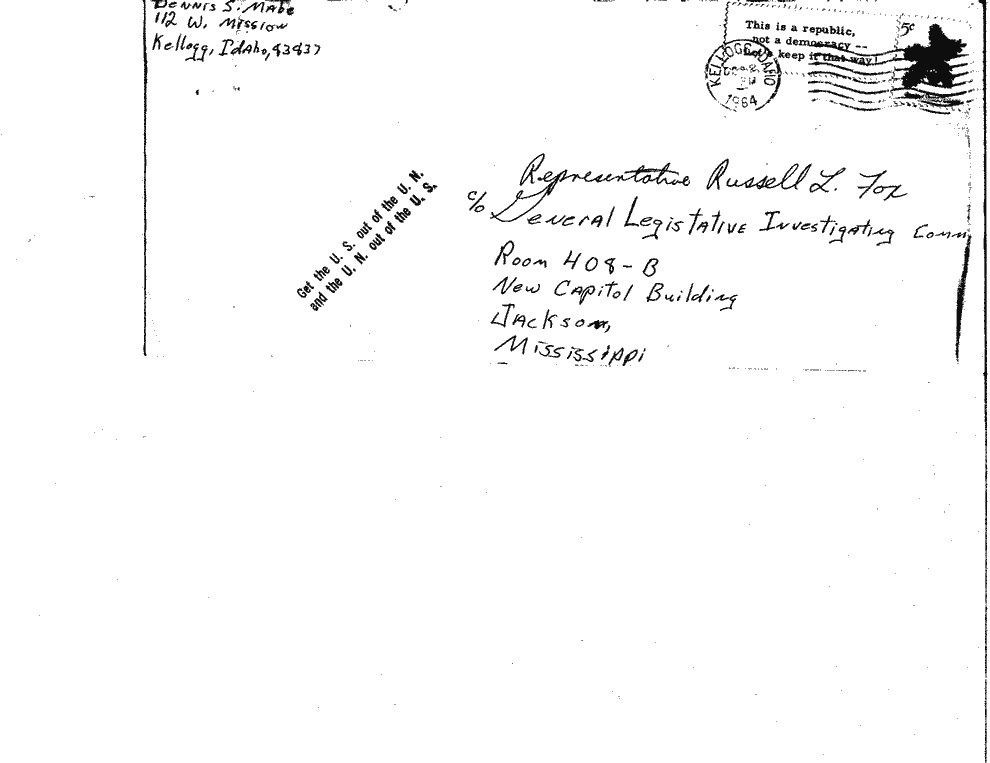 Dennis S. Mabe
112 W. Mission
Kellogg, Idaho, 83837
This is a republic,
not a democracy --
Let's keep it that way!
5¢
KELLOGG, IDAHO
1964
Get the U. S. out of the U. N.
and the U. N. out of the U. S.
Representative Russell L. Fox
c/o General Legistative Investigating Comm
Room 408-B
New Capitol Building
Jackson,
Mississippi